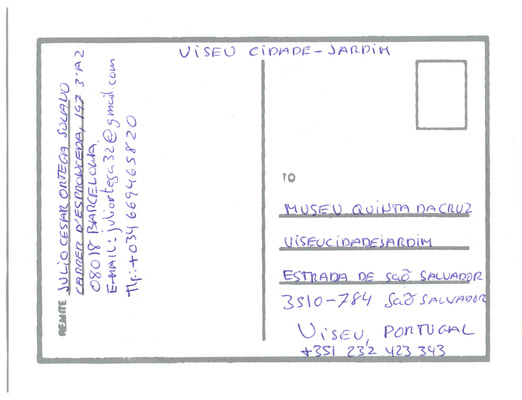 VISEU CIDADE-JARDIM
REMITE JULIO CESAR ORTEGA
CARRER D'ESPRONCEDA, 197 3º A2
08018 BARCELONA
E-MAIL: juliortega32@gmail.com
Tlf.: +034 669465820
TO
MUSEU QUINTA DA CRUZ
VISEUCIDADEJARDIM
ESTRADA DE SÃO SALVADOR
3510-784 SÃO SALVADOR
VISEU, PORTUGAL
+351 232 423 343